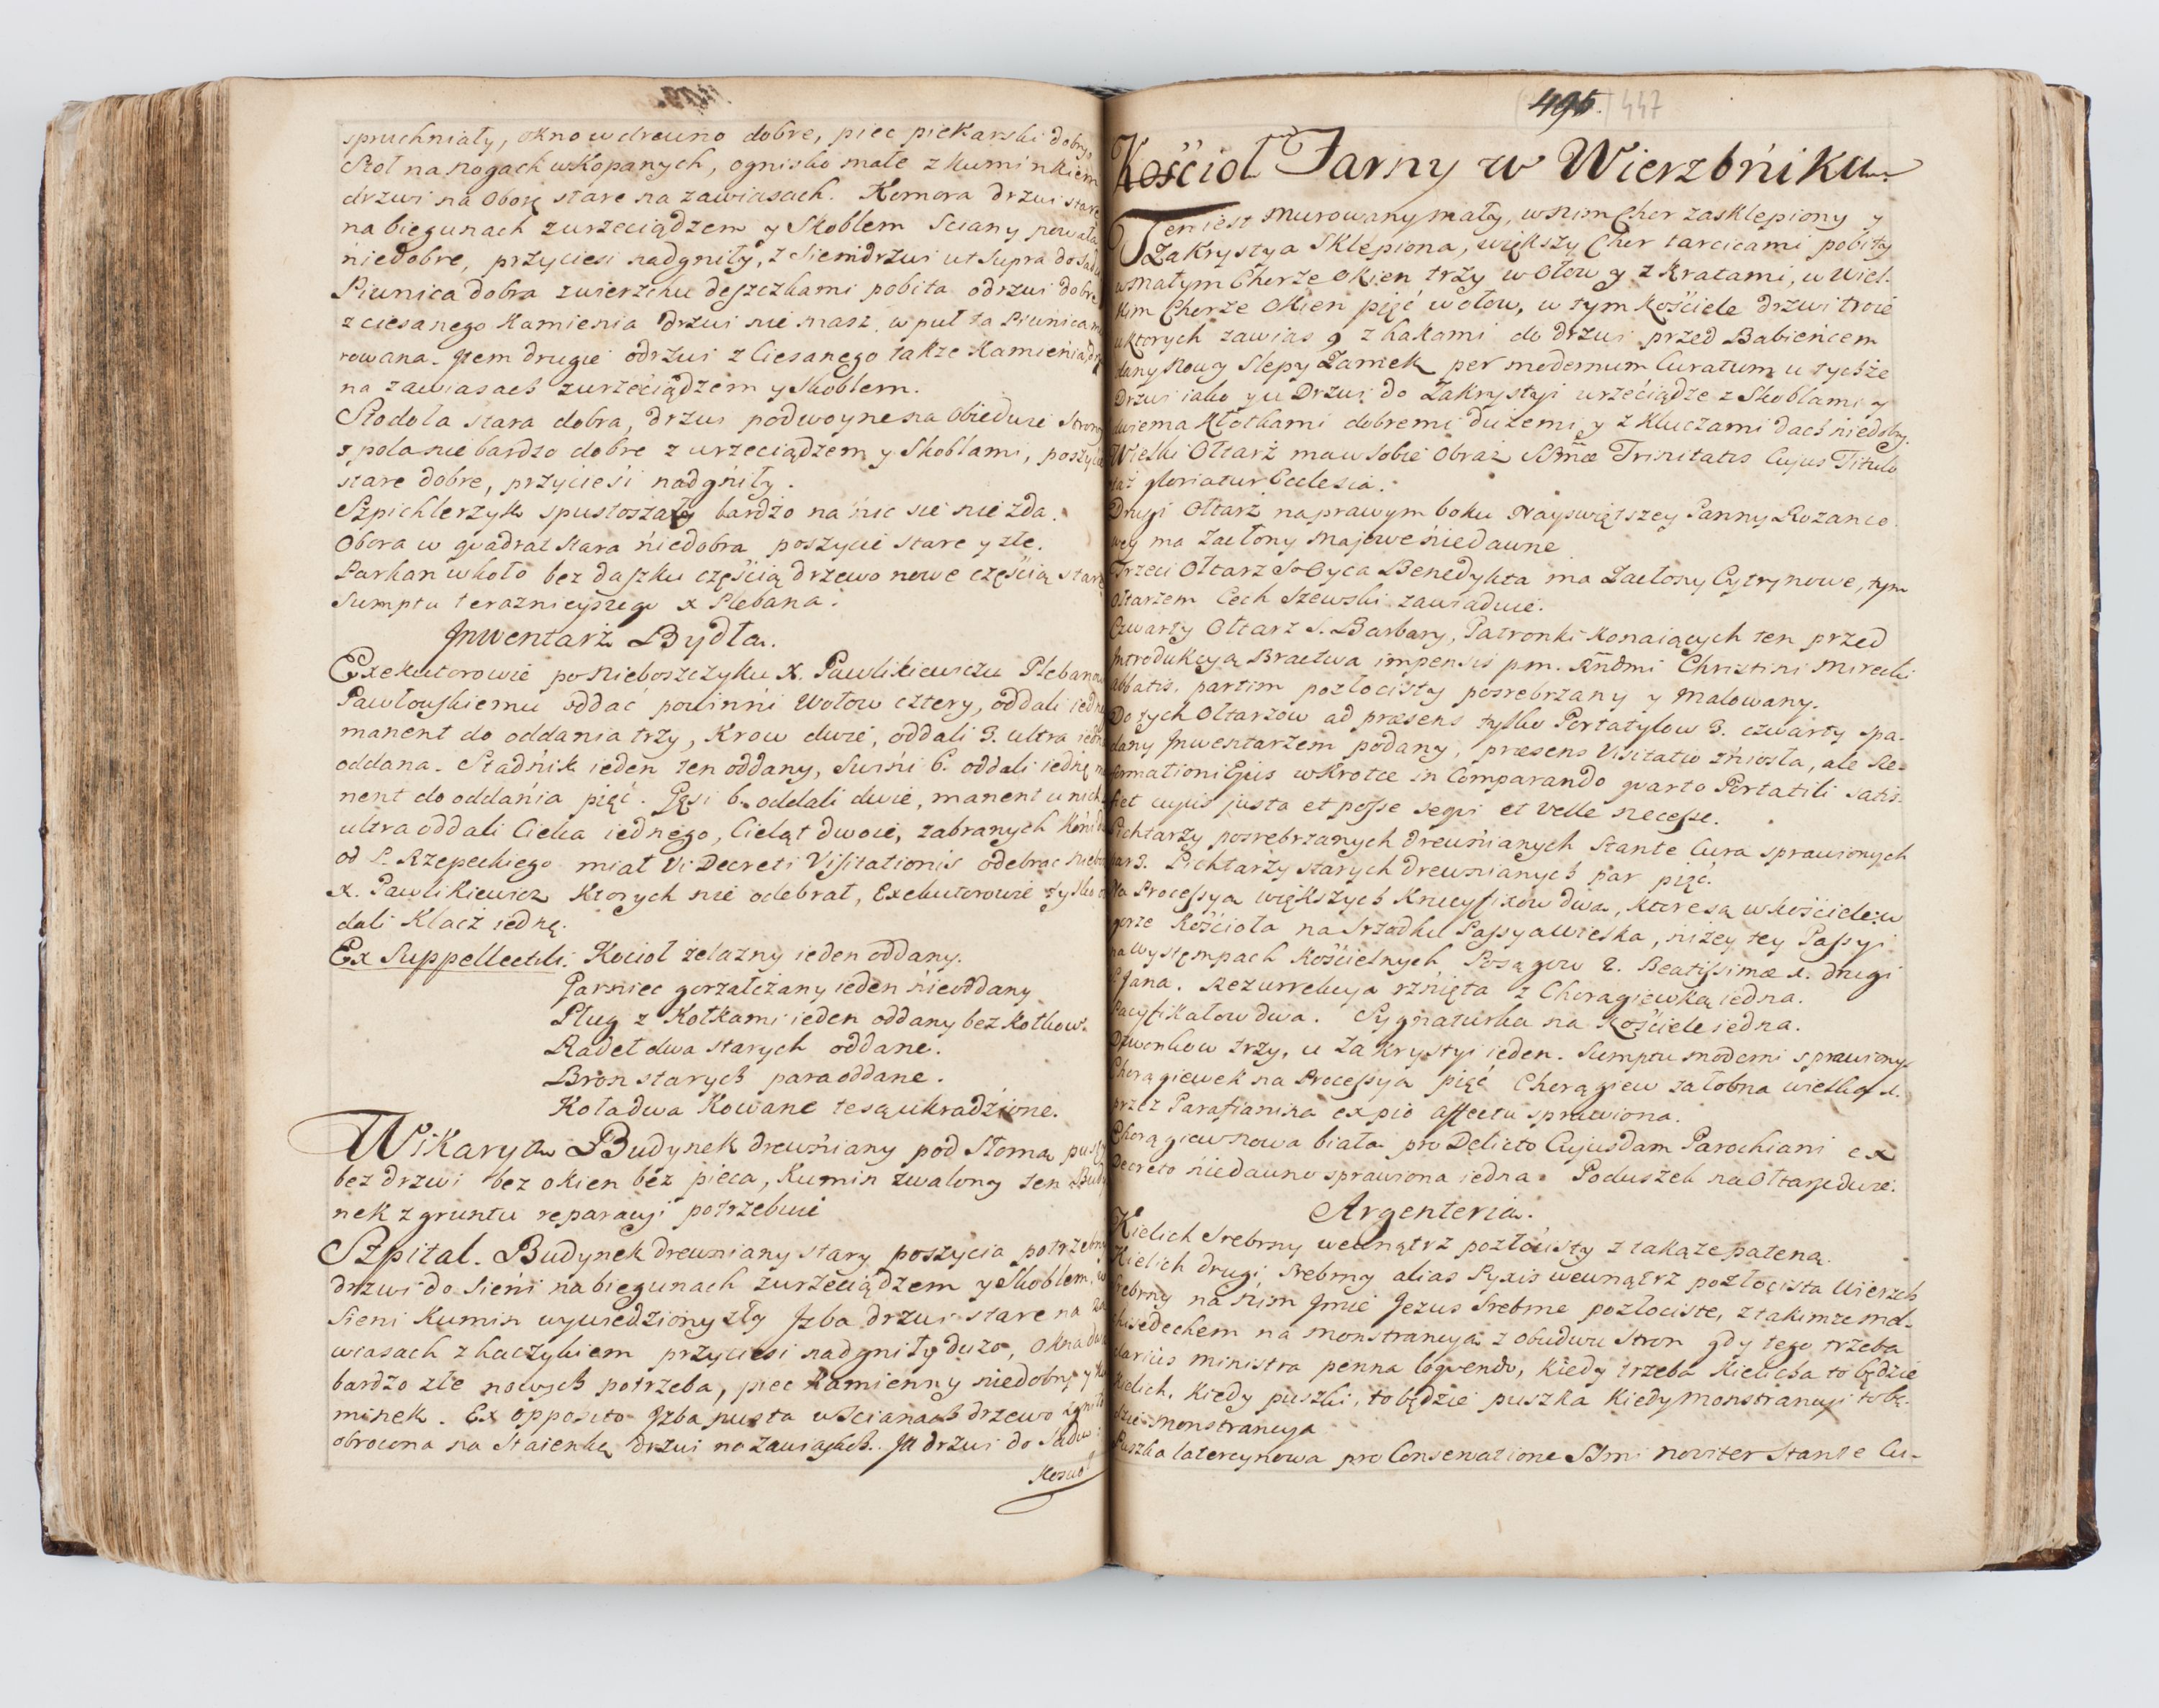 spruchniały, okno w drewno dobre, piec piekarski dobry,
Stoł na nogach wkopanych, ognisko małe z kuminkiem
drzwi na oborę stare na zawiasach. Komora drzwi stare
na biegunach z wrzeciądzem y skoblem Sciany powała
niedobre, przyciesi nadgniły, z Sieni drzwi ut Supra do Sadu
Piwnica dobra z wierzchu deszczkami pobita odrzwi dobre
z ciesanego kamienia drzwi nie masz, w puł ta Piwnica mu
rowana. Item drugie odrzwi z Ciesanego także Kamienia
na zawiasach z wrzeciądzem y Skoblem.
Stodoła stara dobra, drzwi podwoyne na obiedwie Strony
z pola nie bardzo dobre z wrzeciądzem y Skoblami, poszycie
stare dobre, przyciesi nadgniły.
Szpichlerzyk spustoszały bardzo na nic się nie zda.
Obora w qvadrat stara niedobra poszycie stare y złe.
Parkan wkoło bez daszku częścią drzewo nowe częścią stare
Sumptu teraznieyszego X Plebana.
Inwentarz Bydła.
Exekutorowie po Nieboszczyku X. Pawlikiewiczu Plebanowi
Pawłowskiemu oddać powinni Wołow cztery, oddali iedne
manent do oddania trzy, Krow dwie, oddali 3. ultra iedna
oddana. Stadnik ieden ten oddany, Swini 6. oddali iednę ma
nent do oddania pięć. Gęsi 6. oddali dwie, manent u nich
ultra oddali Cielca iednego, Cieląt dwoie, zabranych Koni
od P. Rzepeckiego miał Vi Decreti Visitationis odebrac Niebo
X. Pawlikiewicz ktorych nie odebrał, Exekutorowie tylko o
dali Klacz iednę.
Ex Suppellectili. Kocioł żelazny ieden oddany.
Garniec gorzałczany ieden nieoddany
Pług z Kołkami ieden oddany bez kołkow.
Radeł dwa starych oddane.
Bron starych para oddane.
Koła dwa Kowane te są ukradzione.
Wikarya Budynek drewniany pod Słomą pusty
bez drzwi bez okien bez pieca, Kumin zwalony ten Budy
nek z gruntu reparacyi potrzebuie
Szpital. Budynek drewniany stary poszycia potrzebuie
drzwi do Sieni na biegunach z wrzeciądzem y Skoblem, w
Sieni Kumin wywiedziony zły Izba drzwi stare na za
wiasach z haczykiem przyciesi nadgniły dużo, okna dwa
bardzo złe nowych potrzeba, piec kamienny niedobry y ko
minek. Ex opposito Izba pusta w Scianach drzewo zgniło
obrocona na Staienkę drzwi na zawiasach. Item drzwi do Sadu
Kościoł
495. 447
Kościoł Farny w Wierzbniku.
Ten iest murowany mały, w nim Chor zasklepiony y
Zakrystya Sklepiona, większy Chor tarcicami pobity
w małym Chorze okien trzy w Ołow y z kratami, w Wiel-
kim Chorze Okien pięć w ołow, w tym kościele drzwi troie
u ktorych zawias 9 z hakami do drzwi przed Babieńcem
dany Nowy Slepy Zamek per modernum Curatum u tychże
Drzwi iako y u Drzwi do Zakrystyi wrzeciądze z Skoblami y
dwiema Kłotkami dobremi dużemi y z Kluczami dach niedobry.
Wielki Ołtarz ma w Sobie Obraz SSmæ Trinitatis Cujus Titulo
gloriatur Ecclesia.
Drugi Ołtarz na prawym boku Nayswiętszey Panny Rozanco
wey ma Zasłony Majowe niedawne
Trzeci Ołtarz S. Oyca Benedykta ma Zasłony Cytrynowe, tym
Ołtarzem Cech Szewski zawiaduie.
Czwarty Ołtarz S. Barbary, Patronki konaiących ten przed
Introdukcyą Bractwa impensis p.m. Rñdmi Christini Mirecki
abbatis, partim pozłocisty posrebrzany y malowany.
Do tych Ołtarzow ad præsens tylko Portatylow 3. czwarty spa-
dany Inwentarzem podany, præsens Visitatio zniosła, ale Re-
formationi Ejus wkrotce in Comparando qvarto Portatili satis-
fiet cujus justa et posse seqvi et Velle necesse.
Lichtarzy posrebrzanych drewnianych Stante Cura sprawionych
par 3. Lichtarzy starych drewnianych par pięć.
Na Processyą większych Krucyfixow dwa, ktore są w kościele: w
gorze Kościoła na Srzodku Passya wielka, niżey tey Passyi
na występach Kościelnych Posągow 2. Beatissimæ 1. drugi
S. Jana. Rezurrekcya rznięta z Chorągiewką iedna.
Pacyfikałow dwa. Sygnaturka na Kościele iedna.
Dzwonkow trzy, u Zakrystyi ieden. Sumptu moderni sprawiony
Chorągiewek na Processyą pięć Chorągiew żałobna wielka 1.
przez Parafianina ex pio affectu sprawiona.
Chorągiew nowa biała pro Delicto Cujusdam Parochiani ex
Decreto niedawno sprawiona iedna. Poduszek na Ołtarze dwie.
Argenteria.
Kielich Srebrny wewnątrz pozłocisty z takąże pateną.
Kielich drugi, Srebrny alias Pyxis wewnątrz pozłocista Wierzch
Srebrny na nim Imie Jezus Srebrne pozłociste, z takimże mel-
chisedechem na monstrancyą z obudwu Stron gdy tego trzeba
clarius ministra penna loqvendo, kiedy trzeba kielicha to będzie
kielich, kiedy puszki, to będzie puszka kiedy monstrancyi to bę-
dzie monstrancya
Puszka latercynowa pro Conservatione SSmi noviter Stante Cu-